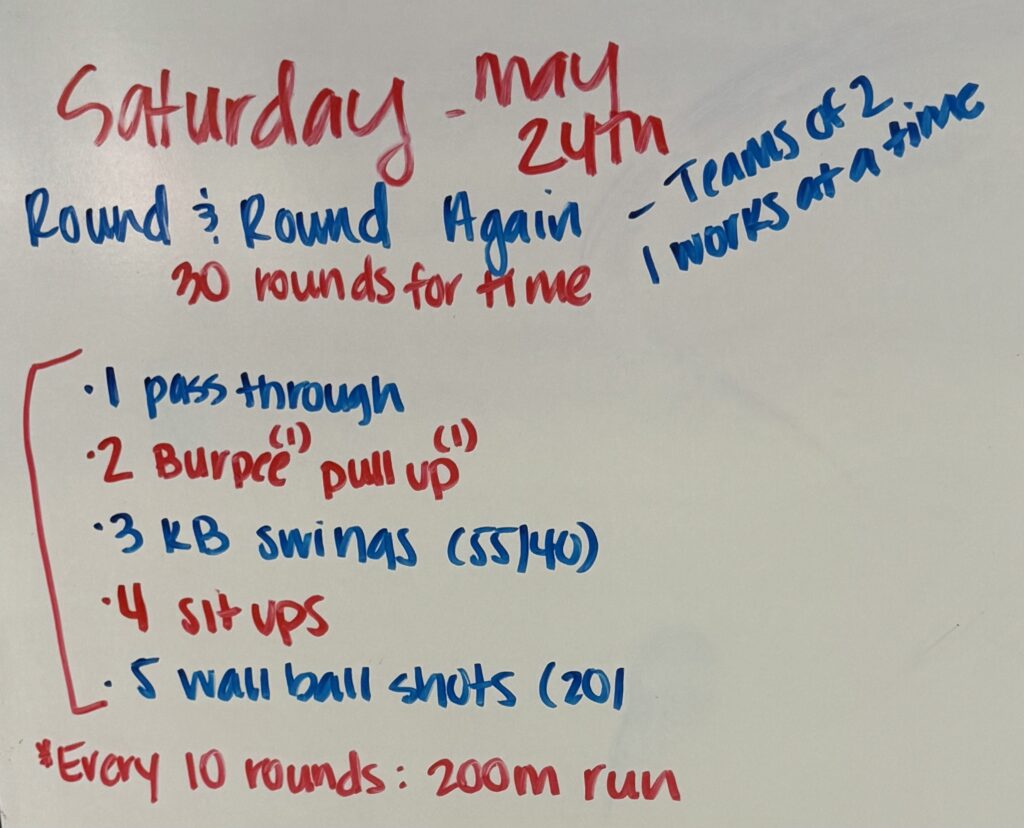 Saturday - may 24th
Round & Round Again
- Teams of 2
1 works at a time
30 rounds for time
· 1 pass through
· 2 Burpee (1) pull up (1)
· 3 KB swings (55/40)
· 4 sit ups
· 5 wall ball shots (20/
*Every 10 rounds: 200m run